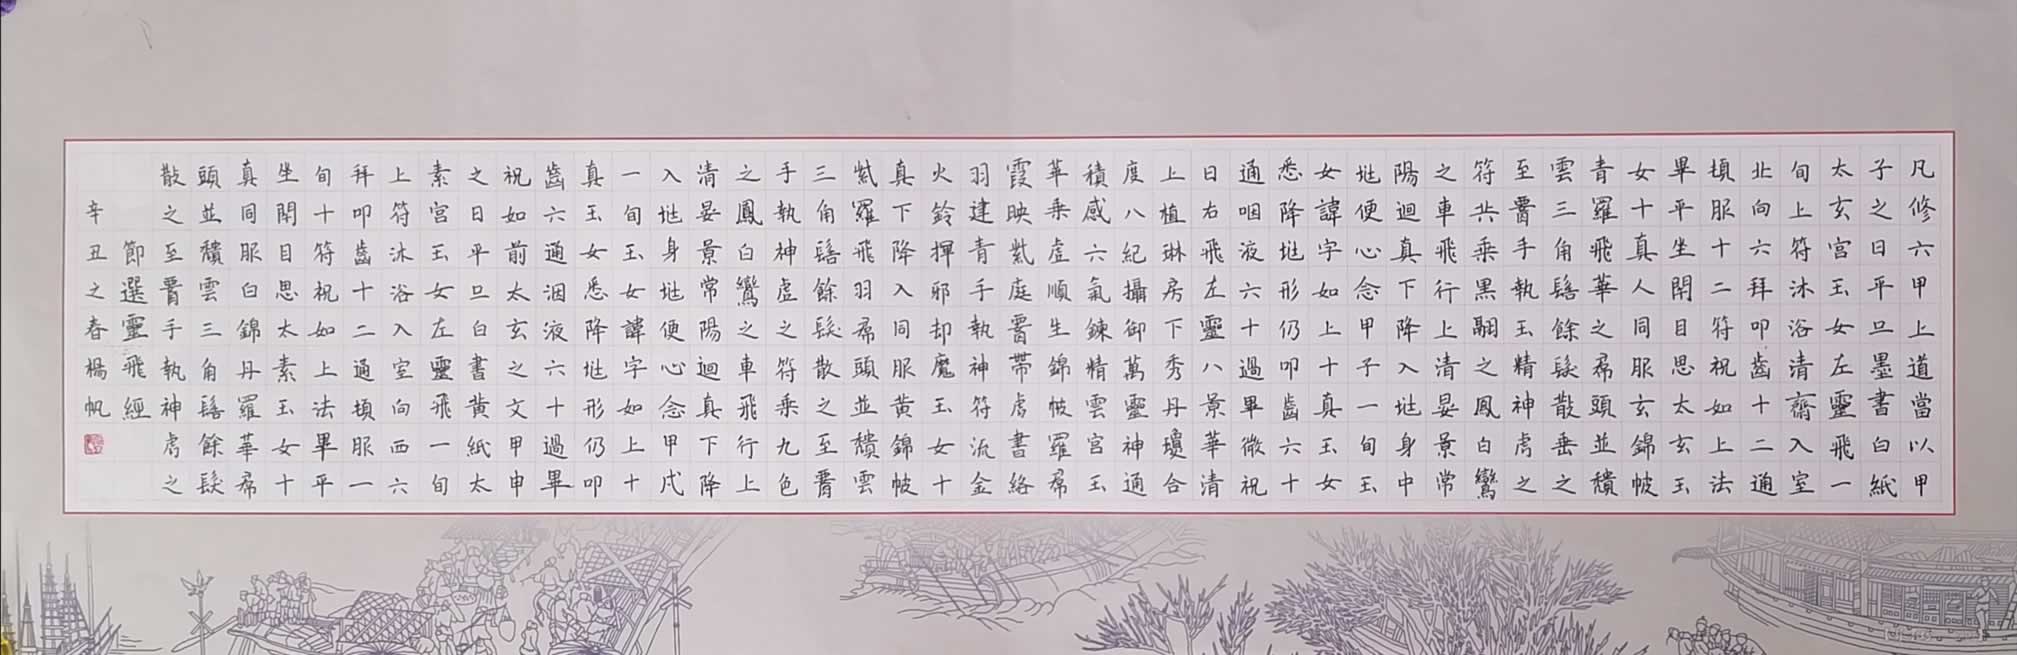 凡修六甲上道當以甲
子之日平旦墨書白紙
太玄宮玉女左靈飛一
旬上符沐浴清齋入室
北向六拜叩齒十二通
頓服十二符祝如上法
畢平坐閉目思太玄玉
女十真人同服玄錦帔
青羅飛華之帬頭並穨
雲三角髻餘髮散垂之
至腰手執玉精神虎之
符共乘黑翮之鳳白鸞
之車飛行上清晏景常
陽迴真下降入地身中
地便心念甲子一旬玉
女諱字如上十真玉女
悉降地形仍叩齒六十
通咽液六十過畢微祝
曰右飛左靈八景華清
上植琳房下秀丹瓊合
度八紀攝御萬靈神通
積感六氣鍊精雲宮玉
華乘虛順生錦帔羅帬
霞映紫庭腰帶虎書絡
羽建青手執神符流金
火鈴揮邪却魔玉女十
真下降入同服黃錦帔
紫羅飛羽帬頭並穨雲
三角髻餘髮散之至腰
手執神虛之符乘九色
之鳳白鸞之車飛行上
清晏景常陽迴真下降
入地身地便心念甲戌
一旬玉女諱字如上十
真玉女悉降地形仍叩
齒六通洇液六十過畢
祝如前太玄之文甲申
之日平旦白書黃紙太
素宮玉女左靈飛一旬
上符沐浴入室向西六
拜叩齒十二通頓服一
旬十符祝如上法畢平
坐閉目思太素玉女十
真同服白錦丹羅華帬
頭並穨雲三角髻餘髮
散之至腰手執神虎之
節選靈飛經
辛丑之春楊帆